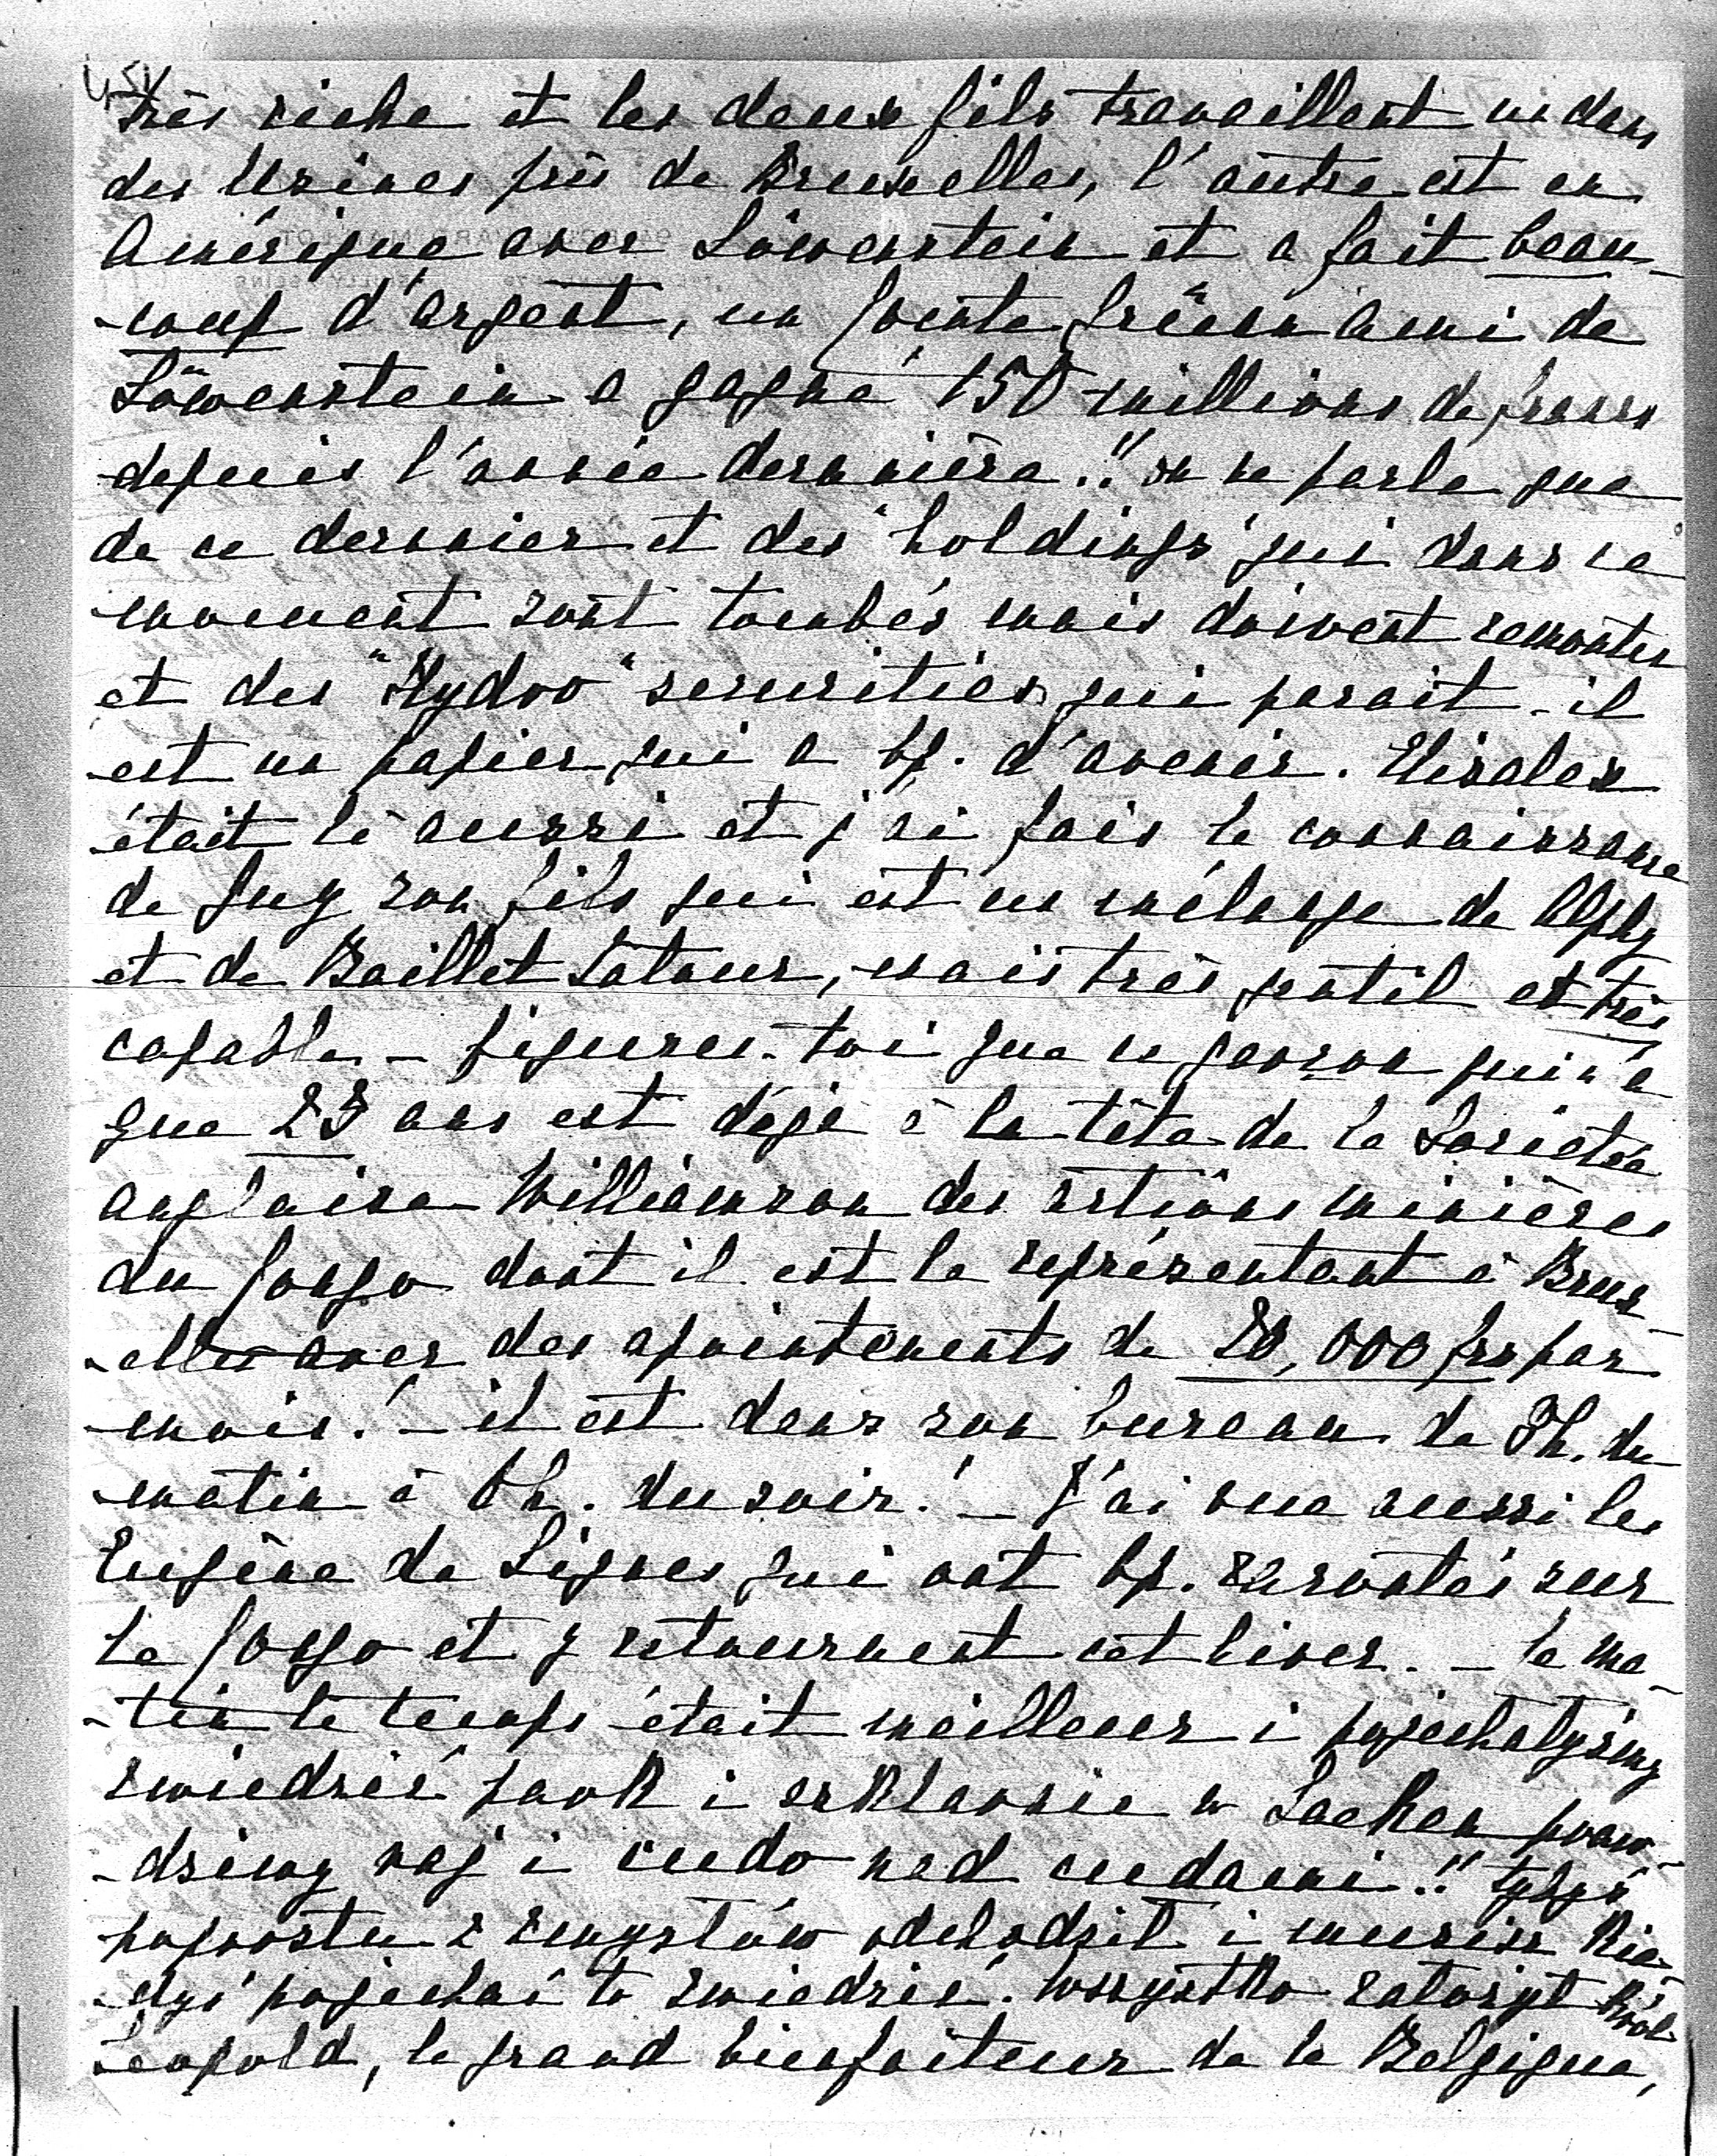 très riche et les deux fils travaillent un dans
des Usines près de Bruxelles, l'autre est en
Amérique avec Löwenstein et a fait beau-
-coup d'argent, un ami de
Löwenstein a gagné 150 millions de francs
depuis l'année dernnière!! on ne parle que
de ce dernnier et des "holdings" qui dans ce
mouvement sont tombés mais doivent remonter
et des "Hydro" securities qui parait-il
est un papier qui a bp. d'avenir. Elisalex
était là aussi et j'ai fais la connaissance
de Guy son fils qui est un mélange de Alphy
et de Baillet Latour, mais très gentil et très
capable - figures-toi que ce garson qui n'a
que 23 ans est déjà à la tête de la Societée
anglaise Williamson des astions minières
du Congo dont il est le représentant à Brux-
-elles avec des apointements de 20,000 frs par
mois! - il est dans son bureau de 9h. du
matin à 6h. du soir! - J'ai vue aussi les
Eugène de Lignes qui ont bp. racontés sur
le Congo et y retournent cet hiver. - le ma-
-tin le temps était meilleur i pojechalyśmy
zwiedzić park i szklarnie w Laeken praw-
-dziwy raj i cudo nad cudami!! Tyżyś
poprostu z zmysłów odchodził i musisz kie-
-dyś pojechać to zwiedzić. Wszystko założył Król
Leopold, le grand bienfaiteur de la Belgique,